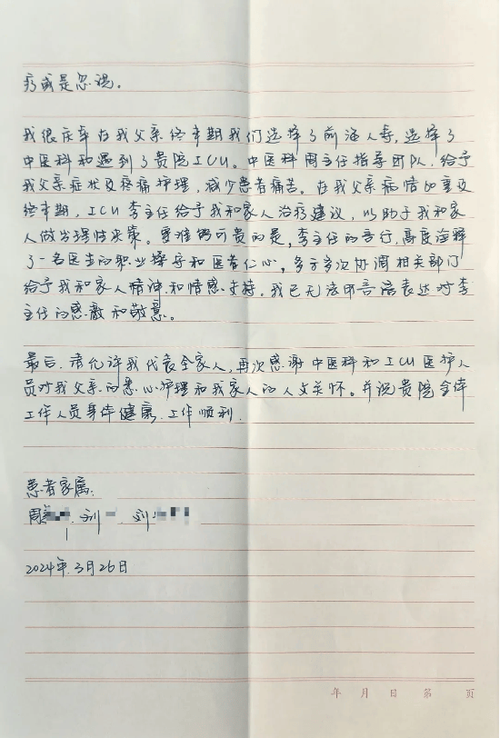 疗或是忽视。
我很庆幸在我父亲终末期我们选择了前海人寿,选择了
中医科和遇到了贵院ICU。中医科周主任指导团队,给予
我父亲症状及疼痛护理,减少患者痛苦。在我父亲病情加重及
终末期,ICU李主任给予我和家人治疗建议,以助于我和家
人做出理性决策。更难能可贵的是,李主任的言行,高度诠释
了一名医生的职业操守和医者仁心,多方多次协调相关部门
给予我和家人精神和情感支持。我已无法用言语表达对李
主任的感激和敬意。
最后,请允许我代表全家人,再次感谢中医科和ICU医护人
员对我父亲的悉心护理和我家人的人文关怀。并祝贵院全体
工作人员身体健康、工作顺利.
患者家属:
周 刘 刘
2024年3月26日
年 月 日 第 页